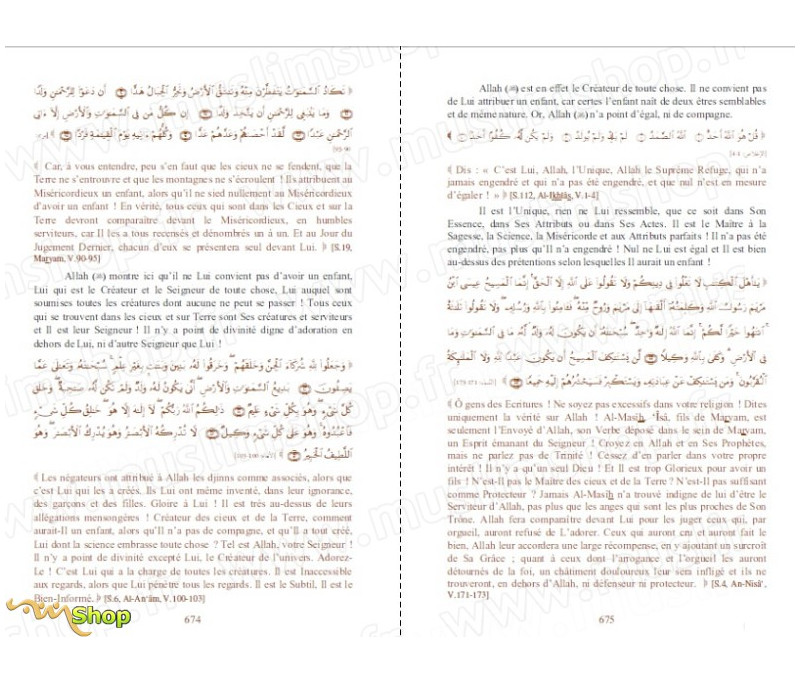 ﴿ تَكَادُ السَّمَوَاتُ يَتَفَطَّرْنَ مِنْهُ وَتَنشَقُّ الْأَرْضُ وَتَخِرُّ الْجِبَالُ هَدًّا أَن دَعَوْا لِلرَّحْمَنِ وَلَدًا
وَمَا يَنبَغِي لِلرَّحْمَنِ أَن يَتَّخِذَ وَلَدًا إِن كُلُّ مَن فِي السَّمَوَاتِ وَالْأَرْضِ إِلَّا ءَاتِي
الرَّحْمَنِ عَبْدًا لَّقَدْ أَحْصَاهُمْ وَعَدَّهُمْ عَدًّا وَكُلُّهُمْ ءَاتِيهِ يَوْمَ الْقِيَامَةِ فَرْدًا ﴾
﴾ Car, à vous entendre, peu s'en faut que les cieux ne se fendent, que la
Terre ne s'entrouvre et que les montagnes ne s'écroulent ! Ils attribuent au
Miséricordieux un enfant, alors qu'il ne sied nullement au Miséricordieux
d'avoir un enfant ! En vérité, tous ceux qui sont dans les Cieux et sur la
Terre devront comparaître devant le Miséricordieux, en humbles
serviteurs, car Il les a tous recensés et dénombrés un à un. Et au Jour du
Jugement Dernier, chacun d'eux se présentera seul devant Lui. ﴿ [S.19,
Maryam, V.90-95]
Allah (ﷻ) montre ici qu'il ne Lui convient pas d'avoir un enfant,
Lui qui est le Créateur et le Seigneur de toute chose, Lui auquel sont
soumises toutes les créatures dont aucune ne peut se passer ! Tous ceux
qui se trouvent dans les cieux et sur Terre sont Ses créatures et serviteurs
et Il est leur Seigneur ! Il n'y a point de divinité digne d'adoration en
dehors de Lui, ni d'autre Seigneur que Lui !
﴿ وَجَعَلُوا لِلَّهِ شُرَكَاءَ الْجِنَّ وَخَلَقَهُمْ وَخَرَقُوا لَهُ بَنِينَ وَبَنَاتٍ بِغَيْرِ عِلْمٍ سُبْحَانَهُ وَتَعَالَى عَمَّا
يَصِفُونَ بَدِيعُ السَّمَوَاتِ وَالْأَرْضِ أَنَّى يَكُونُ لَهُ وَلَدٌ وَلَمْ تَكُن لَّهُ صَاحِبَةٌ وَخَلَقَ
كُلَّ شَيْءٍ وَهُوَ بِكُلِّ شَيْءٍ عَلِيمٌ ذَلِكُمُ اللَّهُ رَبُّكُمْ لَا إِلَهَ إِلَّا هُوَ خَالِقُ كُلِّ شَيْءٍ
فَاعْبُدُوهُ وَهُوَ عَلَى كُلِّ شَيْءٍ وَكِيلٌ لَّا تُدْرِكُهُ الْأَبْصَارُ وَهُوَ يُدْرِكُ الْأَبْصَارَ وَهُوَ
اللَّطِيفُ الْخَبِيرُ ﴾
﴾ Les négateurs ont attribué à Allah les djinns comme associés, alors que
c'est Lui qui les a créés. Ils Lui ont même inventé, dans leur ignorance,
des garçons et des filles. Gloire à Lui ! Il est très au-dessus de leurs
allégations mensongères ! Créateur des cieux et de la Terre, comment
aurait-Il un enfant, alors qu'Il n'a pas de compagne, et qu'Il a tout créé,
Lui dont la science embrasse toute chose ? Tel est Allah, votre Seigneur !
Il n'y a point de divinité excepté Lui, le Créateur de l'univers. Adorez-
Le ! C'est Lui qui a la charge de toutes les créatures. Il est Inaccessible
aux regards, alors que Lui pénètre tous les regards. Il est le Subtil, Il est le
Bien-Informé. ﴿ [S.6, Al-An'âm, V.100-103]
674
Shop
Allah (ﷻ) est en effet le Créateur de toute chose. Il ne convient pas
de Lui attribuer un enfant, car certes l'enfant naît de deux êtres semblables
et de même nature. Or, Allah (ﷻ) n'a point d'égal, ni de compagne.
﴿ قُلْ هُوَ اللَّهُ أَحَدٌ اللَّهُ الصَّمَدُ لَمْ يَلِدْ وَلَمْ يُولَدْ وَلَمْ يَكُن لَّهُ كُفُوًا أَحَدٌ ﴾
﴾ Dis : « C'est Lui, Allah, l'Unique, Allah le Suprême Refuge, qui n'a
jamais engendré et qui n'a pas été engendré, et que nul n'est en mesure
d'égaler ! » ﴿ [S.112, Al-Ikhlâs, V.1-4]
Il est l'Unique, rien ne Lui ressemble, que ce soit dans Son
Essence, dans Ses Attributs ou dans Ses Actes. Il est le Maître à la
Sagesse, la Science, la Miséricorde et aux Attributs parfaits ! Il n'a pas été
engendré, pas plus qu'Il n'a engendré ! Nul ne Lui est égal et Il est bien
au-dessus des prétentions selon lesquelles Il aurait un enfant !
﴿ يَا أَهْلَ الْكِتَابِ لَا تَغْلُوا فِي دِينِكُمْ وَلَا تَقُولُوا عَلَى اللَّهِ إِلَّا الْحَقَّ إِنَّمَا الْمَسِيحُ عِيسَى ابْنُ
مَرْيَمَ رَسُولُ اللَّهِ وَكَلِمَتُهُ أَلْقَاهَا إِلَى مَرْيَمَ وَرُوحٌ مِّنْهُ فَآمِنُوا بِاللَّهِ وَرُسُلِهِ وَلَا تَقُولُوا ثَلَاثَةٌ
انتَهُوا خَيْرًا لَّكُمْ إِنَّمَا اللَّهُ إِلَهٌ وَاحِدٌ سُبْحَانَهُ أَن يَكُونَ لَهُ وَلَدٌ لَّهُ مَا فِي السَّمَوَاتِ وَمَا
فِي الْأَرْضِ وَكَفَى بِاللَّهِ وَكِيلًا لَّن يَسْتَنكِفَ الْمَسِيحُ أَن يَكُونَ عَبْدًا لِّلَّهِ وَلَا الْمَلَائِكَةُ
الْمُقَرَّبُونَ وَمَن يَسْتَنكِفْ عَنْ عِبَادَتِهِ وَيَسْتَكْبِرْ فَسَيَحْشُرُهُمْ إِلَيْهِ جَمِيعًا ﴾
﴾ Ô gens des Ecritures ! Ne soyez pas excessifs dans votre religion ! Dites
uniquement la vérité sur Allah ! Al-Masîh, 'Îsâ, fils de Maryam, est
seulement l'Envoyé d'Allah, son Verbe déposé dans le sein de Maryam,
un Esprit émanant du Seigneur ! Croyez en Allah et en Ses Prophètes,
mais ne parlez pas de Trinité ! Cessez d'en parler dans votre propre
intérêt ! Il n'y a qu'un seul Dieu ! Et Il est trop Glorieux pour avoir un
fils ! N'est-Il pas le Maître des cieux et de la Terre ? N'est-Il pas suffisant
comme Protecteur ? Jamais Al-Masîh n'a trouvé indigne de lui d'être le
Serviteur d'Allah, pas plus que les anges qui sont les plus proches de Son
Trône. Allah fera comparaître devant Lui pour les juger ceux qui, par
orgueil, auront refusé de L'adorer. Ceux qui auront cru et auront fait le
bien, Allah leur accordera une large récompense, en y ajoutant un surcroît
de Sa Grâce ; quant à ceux dont l'arrogance et l'orgueil les auront
détournés de la foi, un châtiment douloureux leur sera infligé et ils ne
trouveront, en dehors d'Allah, ni défenseur ni protecteur. ﴿ [S.4, An-Nisâ',
V.171-173]
675